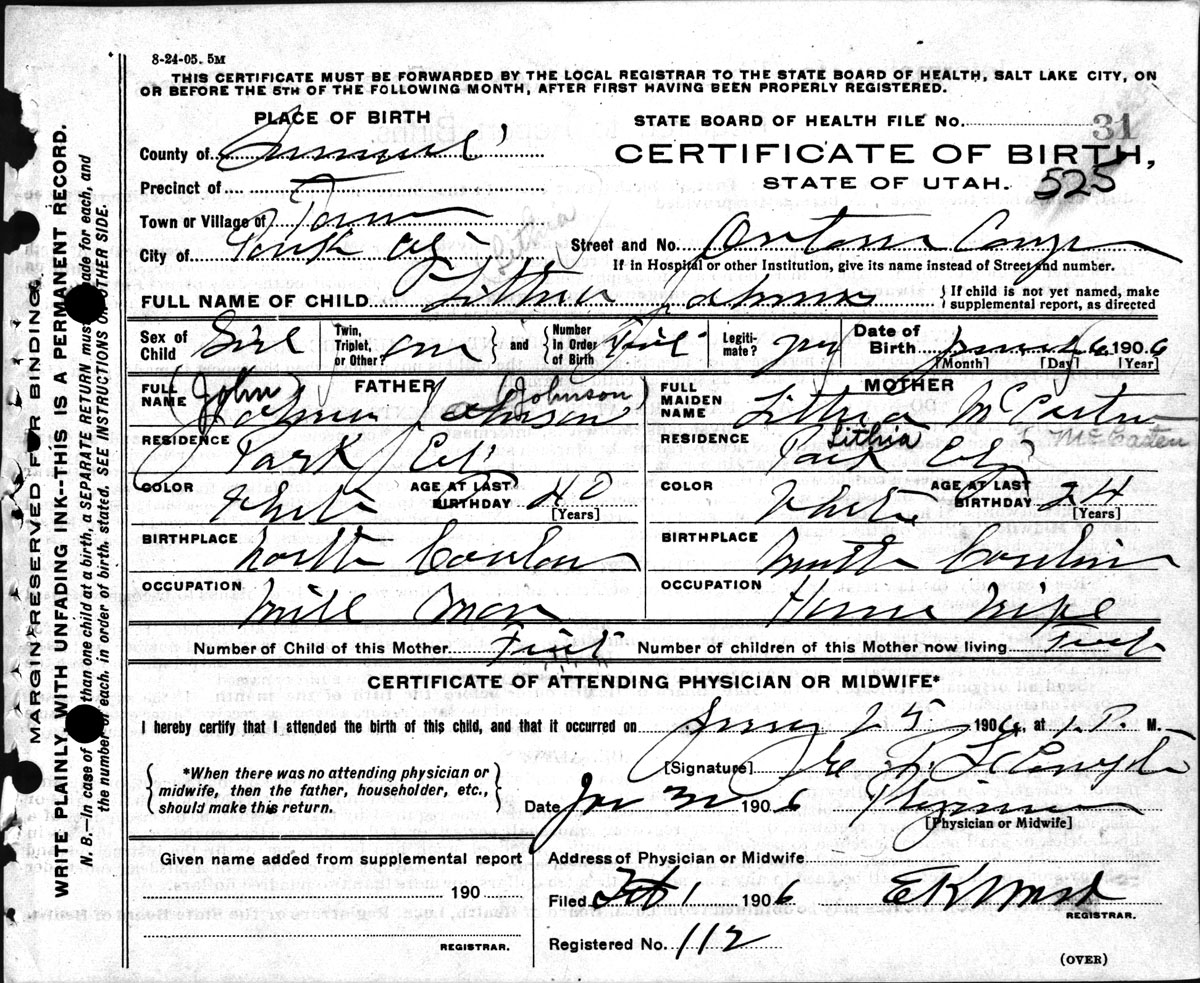 8-24-05. 5M
THIS CERTIFICATE MUST BE FORWARDED BY THE LOCAL REGISTRAR TO THE STATE BOARD OF HEALTH, SALT LAKE CITY, ON
OR BEFORE THE 5TH OF THE FOLLOWING MONTH, AFTER FIRST HAVING BEEN PROPERLY REGISTERED.
PLACE OF BIRTH
STATE BOARD OF HEALTH FILE No. 31
County of
CERTIFICATE OF BIRTH,
Precinct of
STATE OF UTAH. 525
Town or Village of
Lithia
City of Park City Street and No.
If in Hospital or other Institution, give its name instead of Street and number.
FULL NAME OF CHILD { If child is not yet named, make
supplemental report, as directed
Sex of Child Girl Twin, Triplet, or Other? and { Number In Order of Birth First Legitimate? Date of Birth 1906
[Month] [Day] [Year]
FULL NAME (John) FATHER (Johnson)
FULL MAIDEN NAME MOTHER
Lithia McCasten
RESIDENCE Park City
RESIDENCE Park City
COLOR White AGE AT LAST BIRTHDAY 40 [Years]
COLOR White AGE AT LAST BIRTHDAY 24 [Years]
BIRTHPLACE North
BIRTHPLACE North
OCCUPATION Mill Man
OCCUPATION House Wife
Number of Child of this Mother First Number of children of this Mother now living First
CERTIFICATE OF ATTENDING PHYSICIAN OR MIDWIFE*
I hereby certify that I attended the birth of this child, and that it occurred on 25 1906, at 1 P. M.
*When there was no attending physician or
midwife, then the father, householder, etc.,
should make this return.
[Signature]
Date Jan 1906 Physician
[Physician or Midwife]
Given name added from supplemental report
190
REGISTRAR.
Address of Physician or Midwife
Filed Feb 1 1906
REGISTRAR.
Registered No. 112
(OVER)
MARGIN RESERVED FOR BINDING.
WRITE PLAINLY, WITH UNFADING INK--THIS IS A PERMANENT RECORD.
N. B.—In case of than one child at a birth, a SEPARATE RETURN must ade for each, and
the number of each, in order of birth, stated. SEE INSTRUCTIONS ON OTHER SIDE.